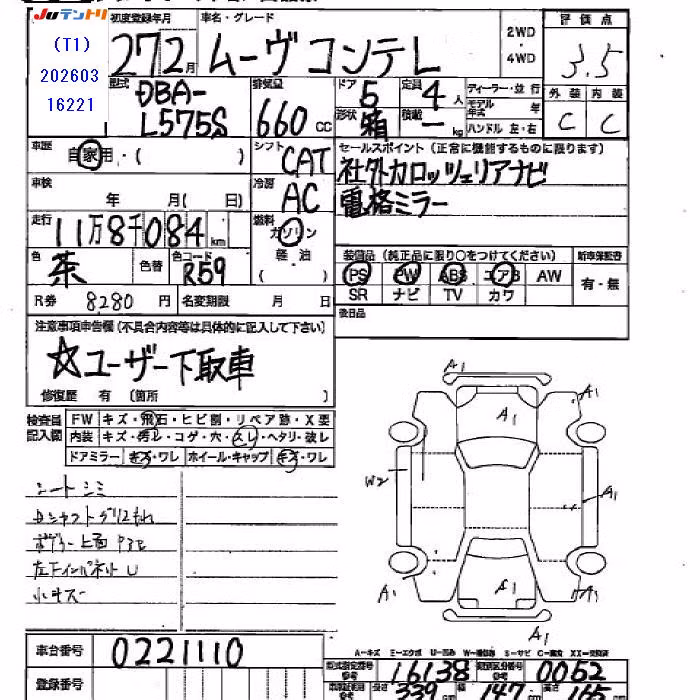 Juテントリ
(T1)
202603
16221
初度登録年月 車名・グレード 2WD・4WD 評価点
27 2月 ムーヴコンテ L 3.5
型式 排気量 ドア 定員 ディーラー・並行 外装 内装
DBA-L575S 660cc 5 4人 モデル年式 年 C C
形状 箱 積載 ー kg ハンドル 左・右
車歴 シフト セールスポイント(正常に機能するものに限ります)
自家用・( ) CAT 社外カロッツェリアナビ
車検 年 月( 日) 冷房 AC 電格ミラー
走行 11万8千084km 燃料 ガソリン 軽油 ( )
色 茶 色替 色コード R59
装備品(純正品に限り○をつけてください) 新車保証書
PS PW ABS エアB AW 有・無
SR ナビ TV カワ
R券 8280円 名変期限 月 日
後日品
注意事項申告欄(不具合内容等は具体的に記入して下さい)
☆ユーザー下取車
修復歴 有(箇所 )
検査員記入欄 FW キズ・飛石・ヒビ割・リペア跡・X要
内装 キズ・汚レ・コゲ・穴・スレ・ヘタリ・破レ
ドアミラー キズ・ワレ ホイール・キャップ キズ・ワレ
シートシミ
小キズ
A1
A1
A1
W2
A1
A1
A1
A1
A1
車台番号 0221110
登録番号
A-キズ E-エクボ U-凹み W-補修跡 S-サビ C-腐食 XX-交換済
型式指定番号 参考 16138 類別区分番号 参考 0052
長さ 339 幅 147 高さ 165